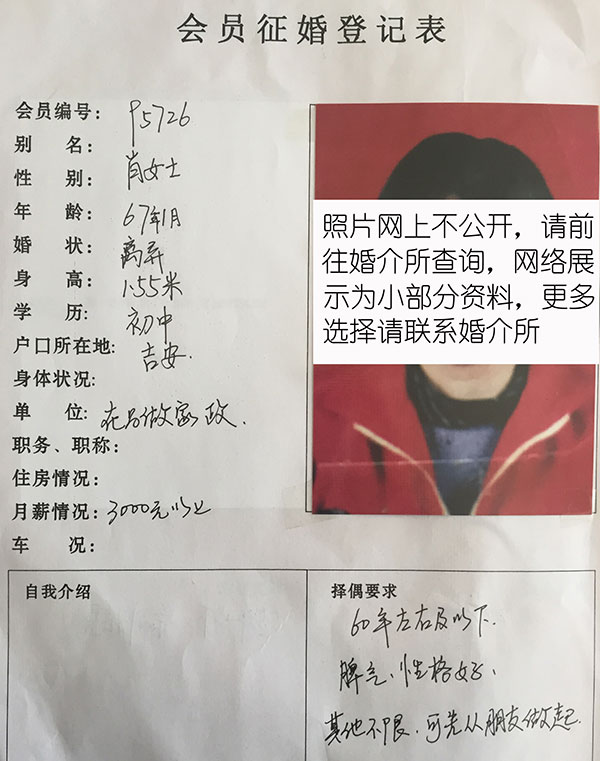 会员征婚登记表
会员编号: P5726
别 名:
性 别: 肖女士
年 龄: 67年1月
婚 状: 离异
身 高: 1.55米
学 历: 初中
户口所在地: 吉安.
身体状况:
单 位: 在昌做家政.
职务、职称:
住房情况:
月薪情况: 3000元以上
车 况:
照片网上不公开，请前
往婚介所查询，网络展
示为小部分资料，更多
选择请联系婚介所
自我介绍
择偶要求
60年左右及以下.
脾气、性格好、
其他不限.可先从朋友做起.